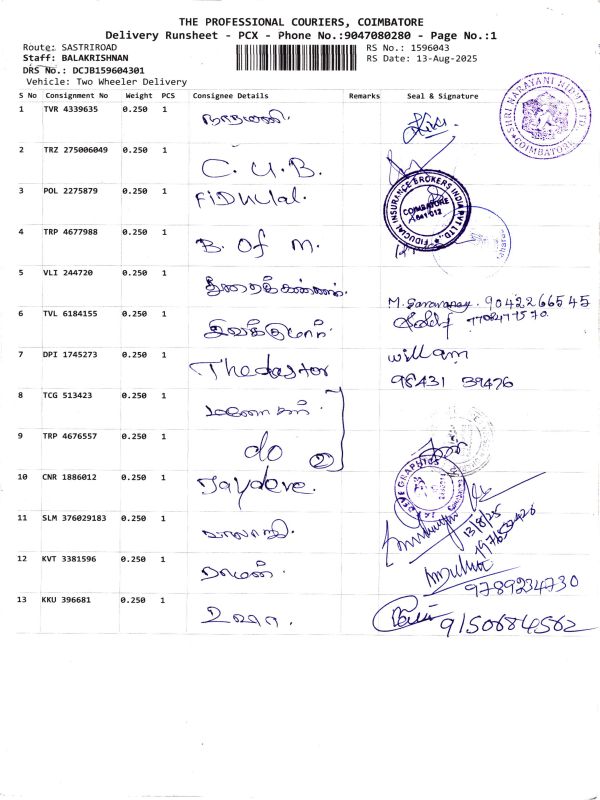 THE PROFESSIONAL COURIERS, COIMBATORE
Delivery Runsheet - PCX - Phone No.:9047080280 - Page No.:1
Route: SASTRIROAD RS No.: 1596043
Staff: BALAKRISHNAN RS Date: 13-Aug-2025
DRS No.: DCJB159604301
Vehicle: Two Wheeler Delivery
S No Consignment No Weight PCS Consignee Details Remarks Seal & Signature
1 TVR 4339635 0.250 1
SHRI NARAYANI NIDHI LTD. COIMBATORE
2 TRZ 275006049 0.250 1 C.U.B.
3 POL 2275879 0.250 1 FiDUcial.
FIDUCIAL INSURANCE BROKERS INDIA PVT LTD. COIMBATORE 641 012
4 TRP 4677988 0.250 1 B. of M.
5 VLI 244720 0.250 1 M. Saravanan. 9042266545
6 TVL 6184155 0.250 1 இலக்குமார்
7 DPI 1745273 0.250 1 The doctor william
98431 39476
8 TCG 513423 0.250 1
9 TRP 4676557 0.250 1 do ②
10 CNR 1886012 0.250 1 Jaydeve.
JAYDEVE GRAPHICS
13/8/25
11 SLM 376029183 0.250 1 பாலாஜி.
12 KVT 3381596 0.250 1 ராமன்.
9789234730
13 KKU 396681 0.250 1 உஷா.
9150684562